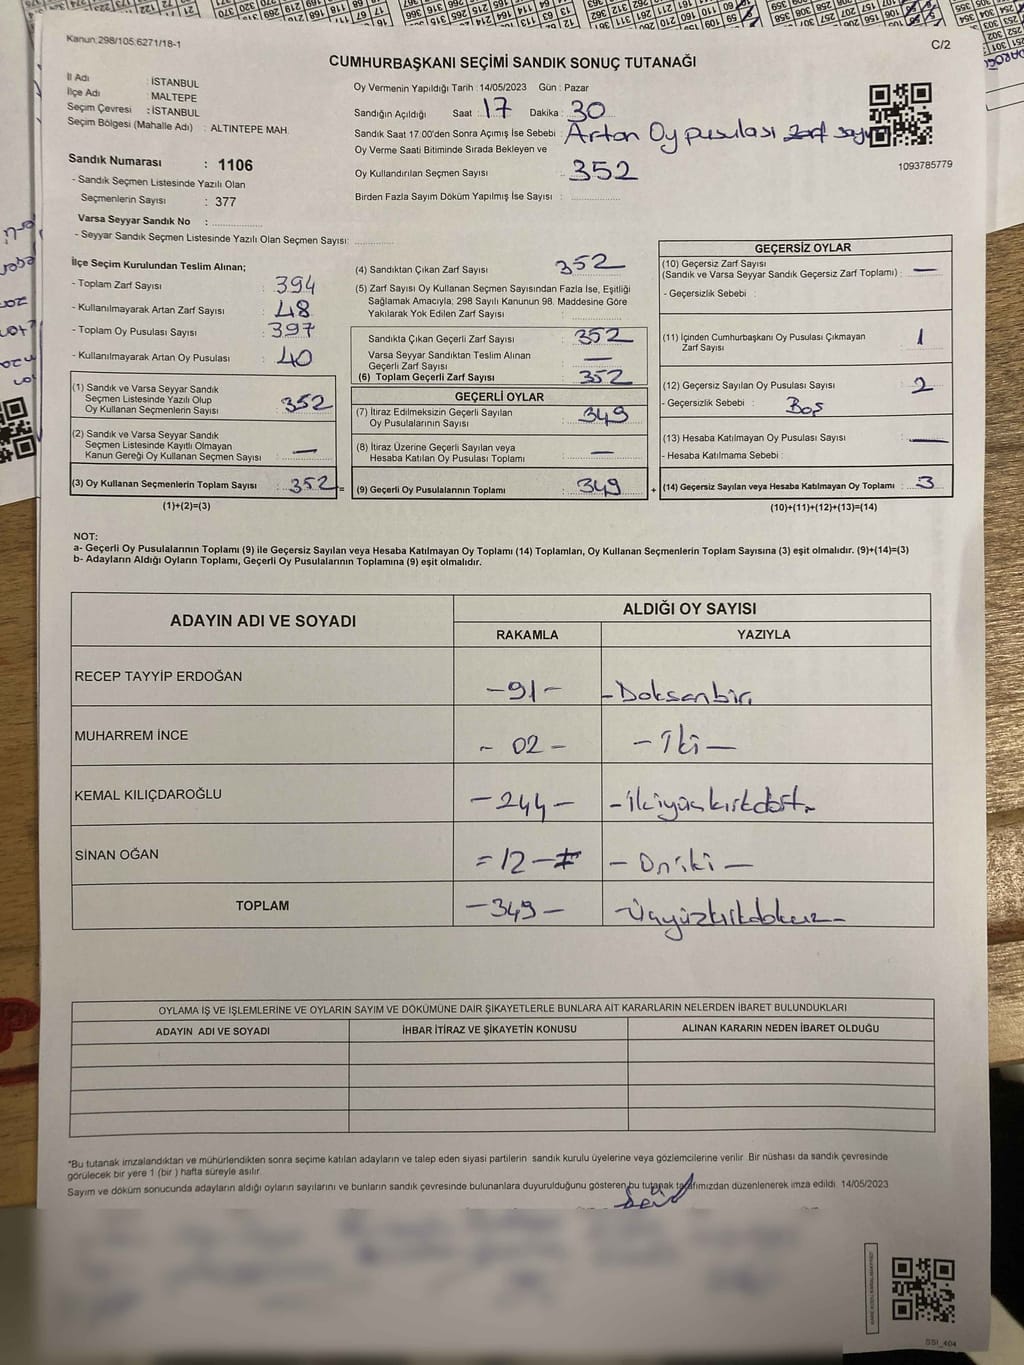 Kanun:298/105;6271/18-1
C/2
CUMHURBAŞKANI SEÇİMİ SANDIK SONUÇ TUTANAĞI
İl Adı : İSTANBUL
İlçe Adı : MALTEPE
Seçim Çevresi : İSTANBUL
Seçim Bölgesi (Mahalle Adı) : ALTINTEPE MAH.
Sandık Numarası : 1106
- Sandık Seçmen Listesinde Yazılı Olan
Seçmenlerin Sayısı : 377
Varsa Seyyar Sandık No :
- Seyyar Sandık Seçmen Listesinde Yazılı Olan Seçmen Sayısı:
Oy Vermenin Yapıldığı Tarih : 14/05/2023 Gün : Pazar
Sandığın Açıldığı Saat : 17 Dakika : 30
Sandık Saat 17.00'den Sonra Açımış İse Sebebi : Artan Oy pusulası zarf
Oy Verme Saati Bitiminde Sırada Bekleyen ve
Oy Kullandırılan Seçmen Sayısı : 352
Birden Fazla Sayım Döküm Yapılmış İse Sayısı :
1093785779
İlçe Seçim Kurulundan Teslim Alınan;
- Toplam Zarf Sayısı : 394
- Kullanılmayarak Artan Zarf Sayısı : 48
- Toplam Oy Pusulası Sayısı : 397
- Kullanılmayarak Artan Oy Pusulası : 40
(1) Sandık ve Varsa Seyyar Sandık
Seçmen Listesinde Yazılı Olup
Oy Kullanan Seçmenlerin Sayısı : 352
(2) Sandık ve Varsa Seyyar Sandık
Seçmen Listesinde Kayıtlı Olmayan
Kanun Gereği Oy Kullanan Seçmen Sayısı : —
(3) Oy Kullanan Seçmenlerin Toplam Sayısı : 352 =
(1)+(2)=(3)
(4) Sandıktan Çıkan Zarf Sayısı : 352
(5) Zarf Sayısı Oy Kullanan Seçmen Sayısından Fazla İse, Eşitliği
Sağlamak Amacıyla; 298 Sayılı Kanunun 98. Maddesine Göre
Yakılarak Yok Edilen Zarf Sayısı :
Sandıkta Çıkan Geçerli Zarf Sayısı : 352
Varsa Seyyar Sandıktan Teslim Alınan
Geçerli Zarf Sayısı : —
(6) Toplam Geçerli Zarf Sayısı : 352
GEÇERLİ OYLAR
(7) İtiraz Edilmeksizin Geçerli Sayılan
Oy Pusulalarının Sayısı : 349
(8) İtiraz Üzerine Geçerli Sayılan veya
Hesaba Katılan Oy Pusulası Toplamı : —
(9) Geçerli Oy Pusulalarının Toplamı : 349 +
GEÇERSİZ OYLAR
(10) Geçersiz Zarf Sayısı
(Sandık ve Varsa Seyyar Sandık Geçersiz Zarf Toplamı) : —
- Geçersizlik Sebebi :
(11) İçinden Cumhurbaşkanı Oy Pusulası Çıkmayan
Zarf Sayısı : 1
(12) Geçersiz Sayılan Oy Pusulası Sayısı : 2
- Geçersizlik Sebebi : Boş
(13) Hesaba Katılmayan Oy Pusulası Sayısı : —
- Hesaba Katılmama Sebebi :
(14) Geçersiz Sayılan veya Hesaba Katılmayan Oy Toplamı : 3
(10)+(11)+(12)+(13)=(14)
NOT:
a- Geçerli Oy Pusulalarının Toplamı (9) ile Geçersiz Sayılan veya Hesaba Katılmayan Oy Toplamı (14) Toplamları, Oy Kullanan Seçmenlerin Toplam Sayısına (3) eşit olmalıdır. (9)+(14)=(3)
b- Adayların Aldığı Oyların Toplamı, Geçerli Oy Pusulalarının Toplamına (9) eşit olmalıdır.
ADAYIN ADI VE SOYADI
ALDIĞI OY SAYISI
RAKAMLA YAZIYLA
RECEP TAYYİP ERDOĞAN -91- -Doksanbir
MUHARREM İNCE - 02 - - İki -
KEMAL KILIÇDAROĞLU -244- -ikiyüzkırkdört-
SİNAN OĞAN =12- - Oniki -
TOPLAM -349- -Üçyüzkırkdokuz-
OYLAMA İŞ VE İŞLEMLERİNE VE OYLARIN SAYIM VE DÖKÜMÜNE DAİR ŞİKAYETLERLE BUNLARA AİT KARARLARIN NELERDEN İBARET BULUNDUKLARI
ADAYIN ADI VE SOYADI İHBAR İTİRAZ VE ŞİKAYETİN KONUSU ALINAN KARARIN NEDEN İBARET OLDUĞU
*Bu tutanak imzalandıktan ve mühürlendikten sonra seçime katılan adayların ve talep eden siyasi partilerin sandık kurulu üyelerine veya gözlemcilerine verilir. Bir nüshası da sandık çevresinde
görülecek bir yere 1 (bir ) hafta süreyle asılır.
Sayım ve döküm sonucunda adayların aldığı oyların sayılarını ve bunların sandık çevresinde bulunanlara duyurulduğunu gösteren bu tutanak tarafımızdan düzenlenerek imza edildi. 14/05/2023
SSI_404